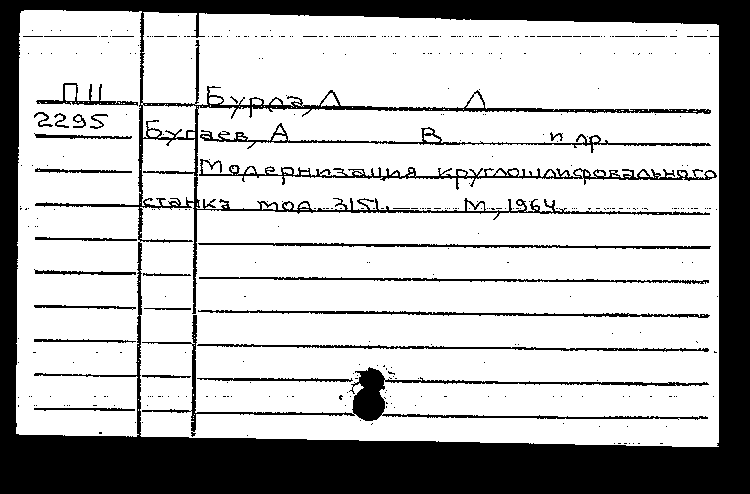 П11 Бурда, Л Л
2295 Бугаев, А В и др.
Модернизация круглошлифовального
станка мод. 3151. М, 1964.